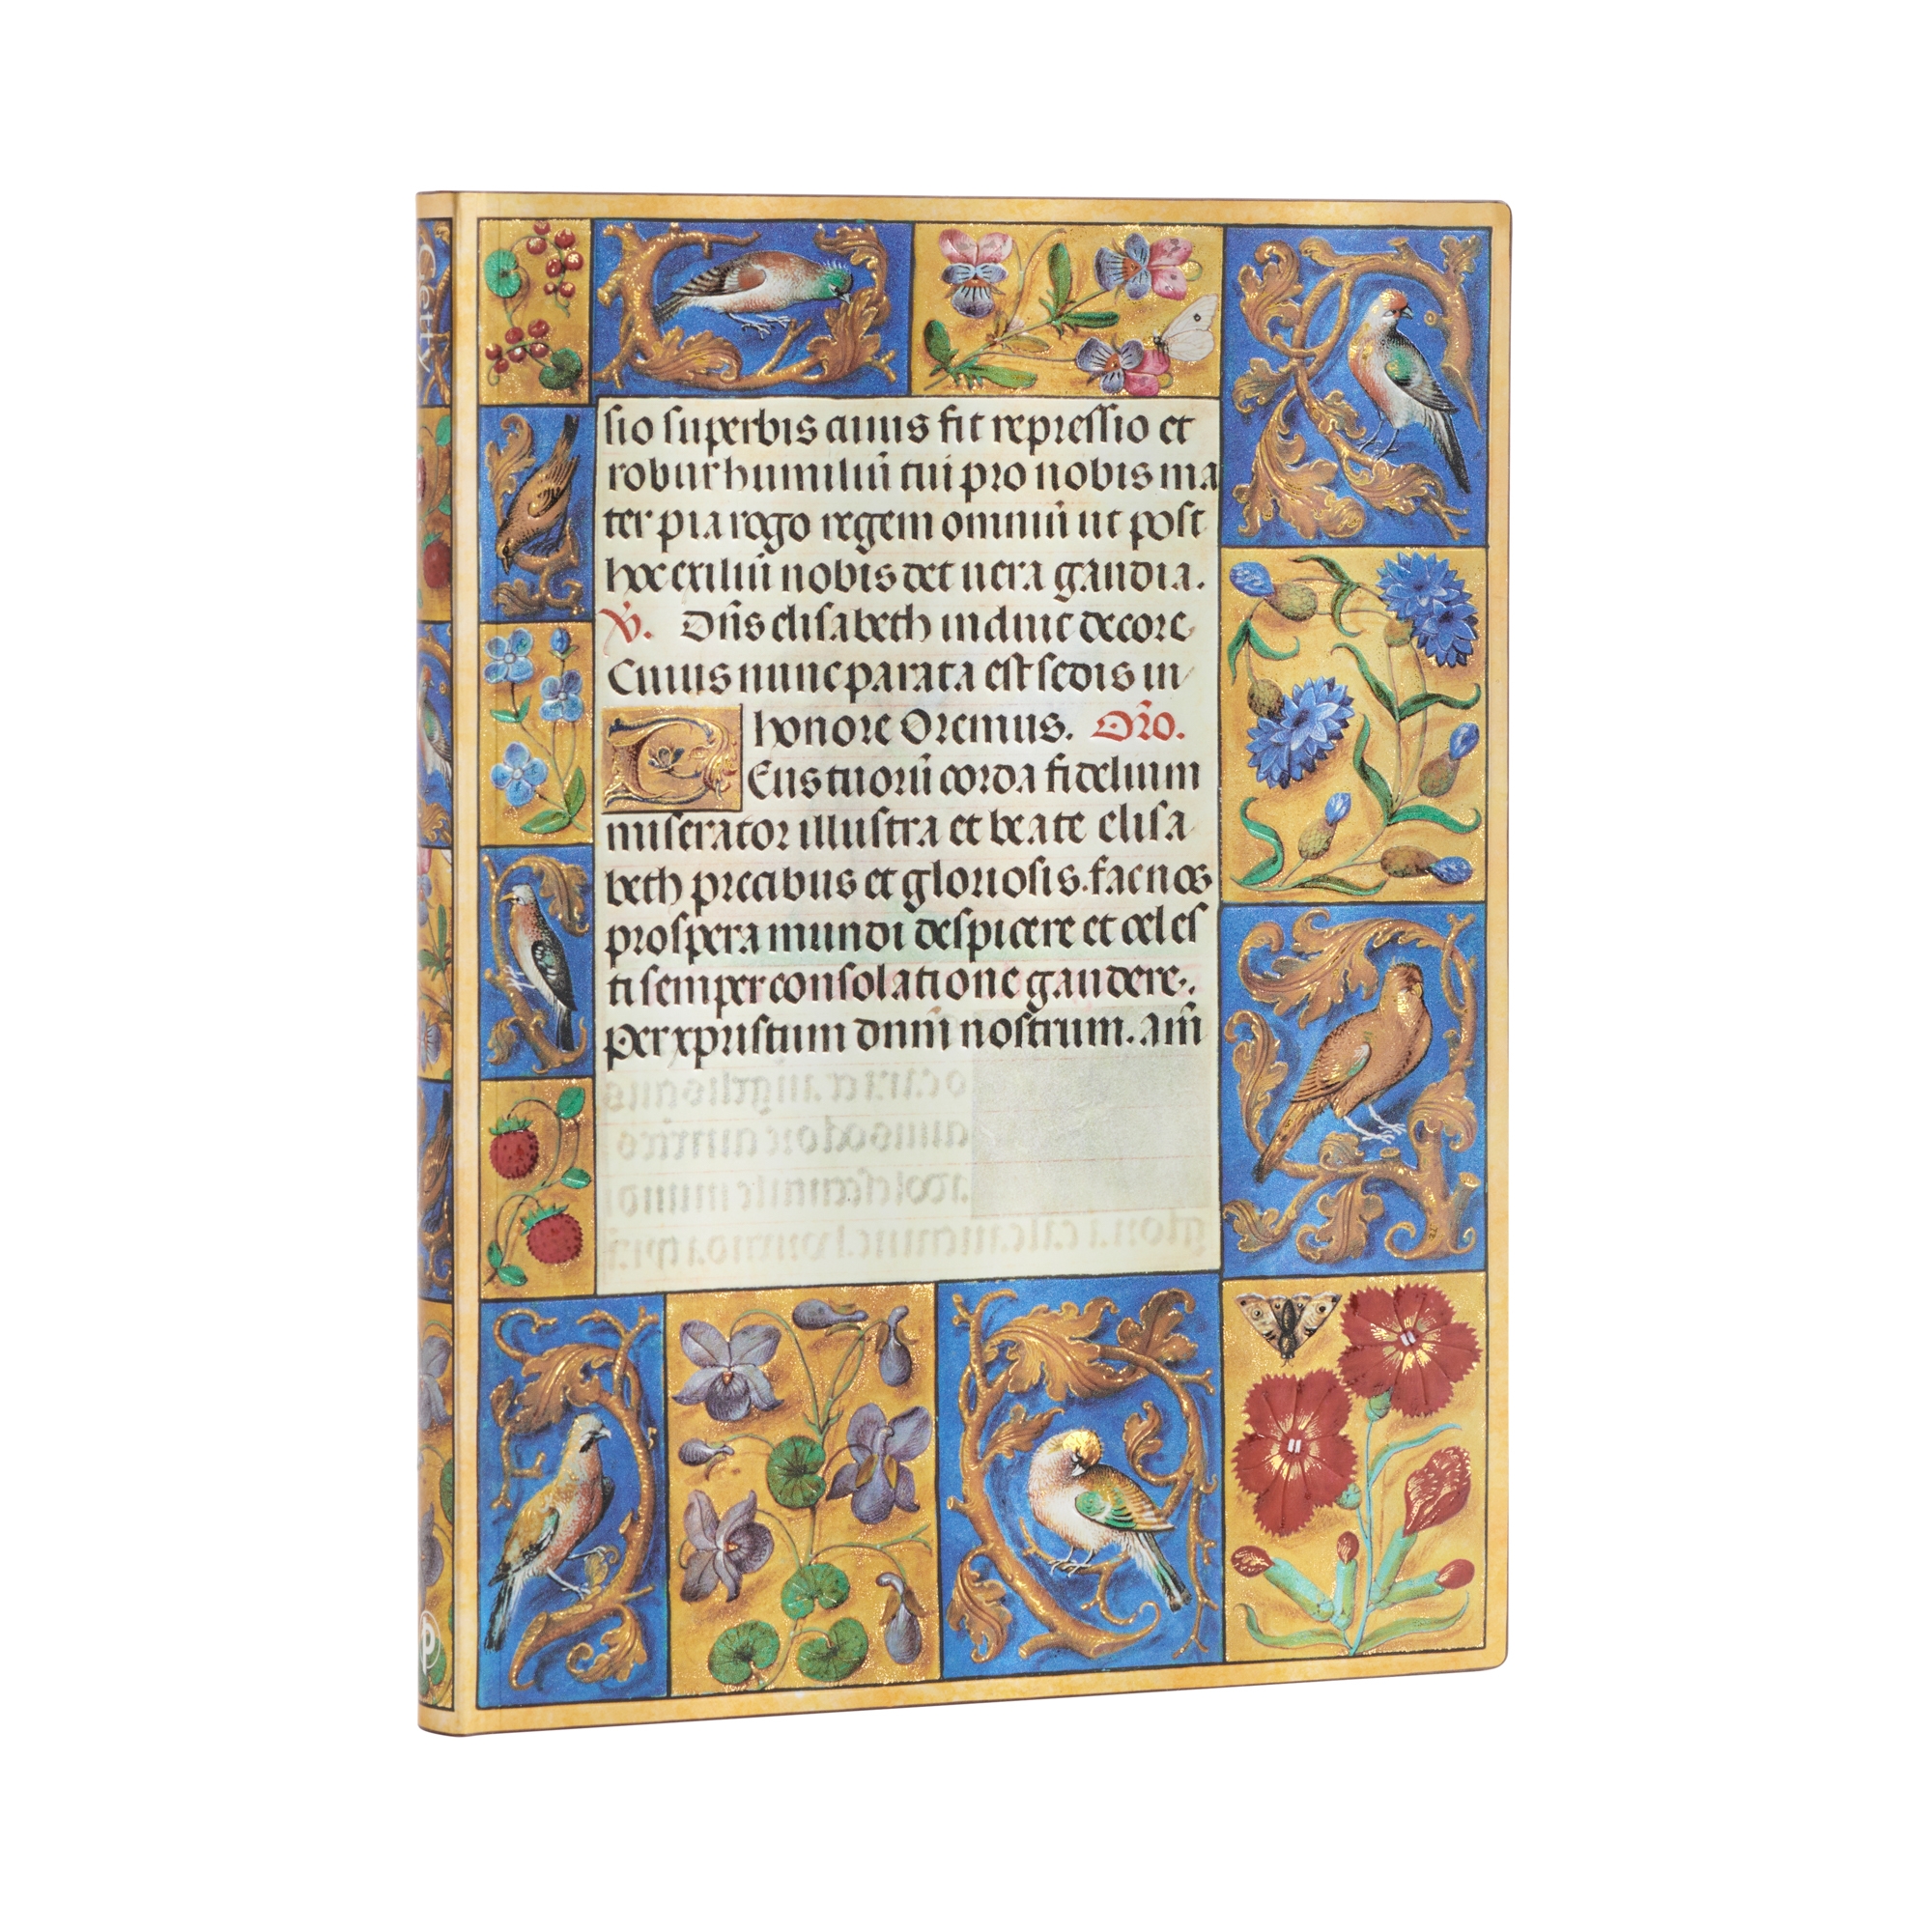 sio superbis cuius fit repressio et
robur humiliū tui pro nobis ma
ter pia rogo regem omniū ut post
hoc exiliū nobis det uera gaudia.
V. Dñs elisabeth induit decore
Cuius nunc parata est sedis in
honore Oremus. Orõ.
DEus tuorū corda fidelium
miserator illustra et beate elisa
beth precibus et gloriosis. fac nos
prospera mundi despicere et celes
ti semper consolatione gaudere.
Per xpristum dnm̄ nostrum. am̄